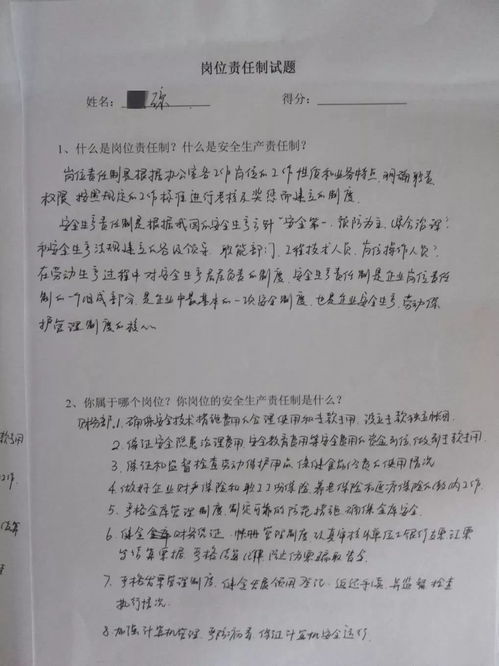 岗位责任制试题
姓名: 琼 得分:
1、什么是岗位责任制?什么是安全生产责任制?
岗位责任制是根据办公室各工作岗位的工作性质和业务特点,明确职责
权限,按照规定的工作标准进行考核及奖惩而建立的制度。
安全生产责任制是根据我国的安全生产方针“安全第一,预防为主,综合治理”
和安全生产法规建立的各级领导、职能部门、工程技术人员、岗位操作人员
在劳动生产过程中对安全生产层层负责的制度,安全生产责任制是企业岗位责任
制的一个组成部分,是企业中最基本的一项安全制度,也是企业安全生产、劳动保
护管理制度的核心。
2、你属于哪个岗位?你岗位的安全生产责任制是什么?
财务部.1.确保安全技术措施费用的合理使用和专款专用,设立专款独立帐目
2.保证安全隐患治理费用,安全教育费用等安全费用的资金到位,做到专款专用
3.保证和监督检查劳动保护用品、保健食品的费用使用情况
4.做好企业财产保险和职工工伤保险,养老保险和医疗保险的缴纳工作
5.严格金库管理制度,制定可靠的防范措施确保金库安全.
6.健全财务凭证、帐册管理制度,认真审核外单位工银行支票汇票
等结算票据,严格结算纪律,防止伪票骗取资金.
7.严格发票管理制度,健全发票领用登记、返还手续,并监督检查
执行情况.
8.加强计算机管理,严防病毒,保证计算机安全运行.
款专用
工作.
结算